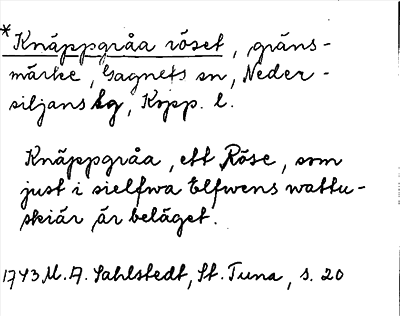 *Knäppgråa röset, gräns-
märke, Gagnefs sn, Neder-
siljans tg, Kopp. l.
Knäppgråa, ett Röse, som
just i sielfwa Elfwens wattu-
skiär är beläget.
1743 M. A. Sahlstedt, St. Tuna, s. 20